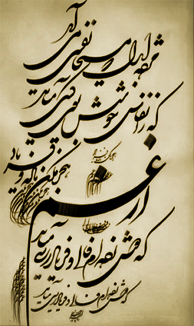 مژده ای دل که مسیحا نفسی می آید
که ز انفاس خوشش بوی کسی می آید
از غم هجر مکن ناله و فریاد
که دوش زده ام فالی و فریادرسی می آید